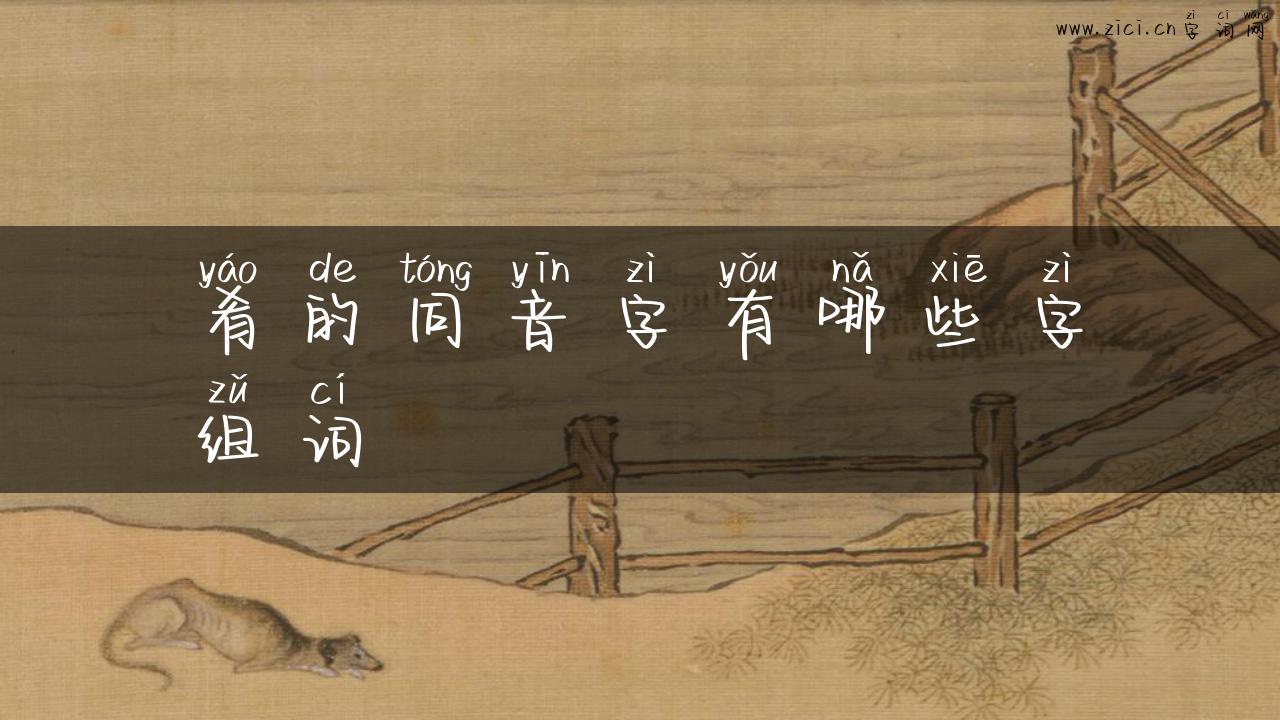 zì cí wang
www.zici.cn 字词网
yáo de tóng yīn zì yǒu nǎ xiē zì
肴的同音字有哪些字
zǔ cí
组词